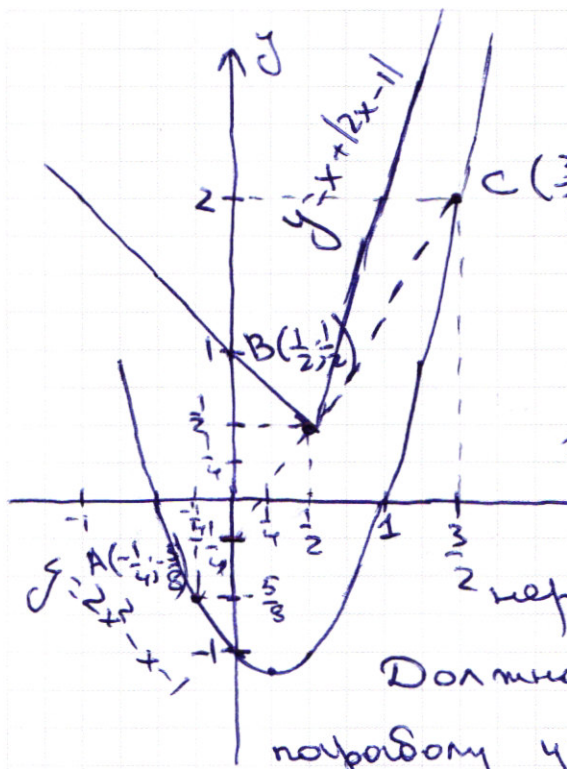 y
y = x + |2x - 1|
C (3/
2
1
B(1/2; 1/2)
1/2
1/4
-1
-1/4
1/4
1/2
1
3/2
-1/4
A(-1/4; -5/8)
-5/8
y = 2x² - x - 1
-1
нер
Должно
параболу у